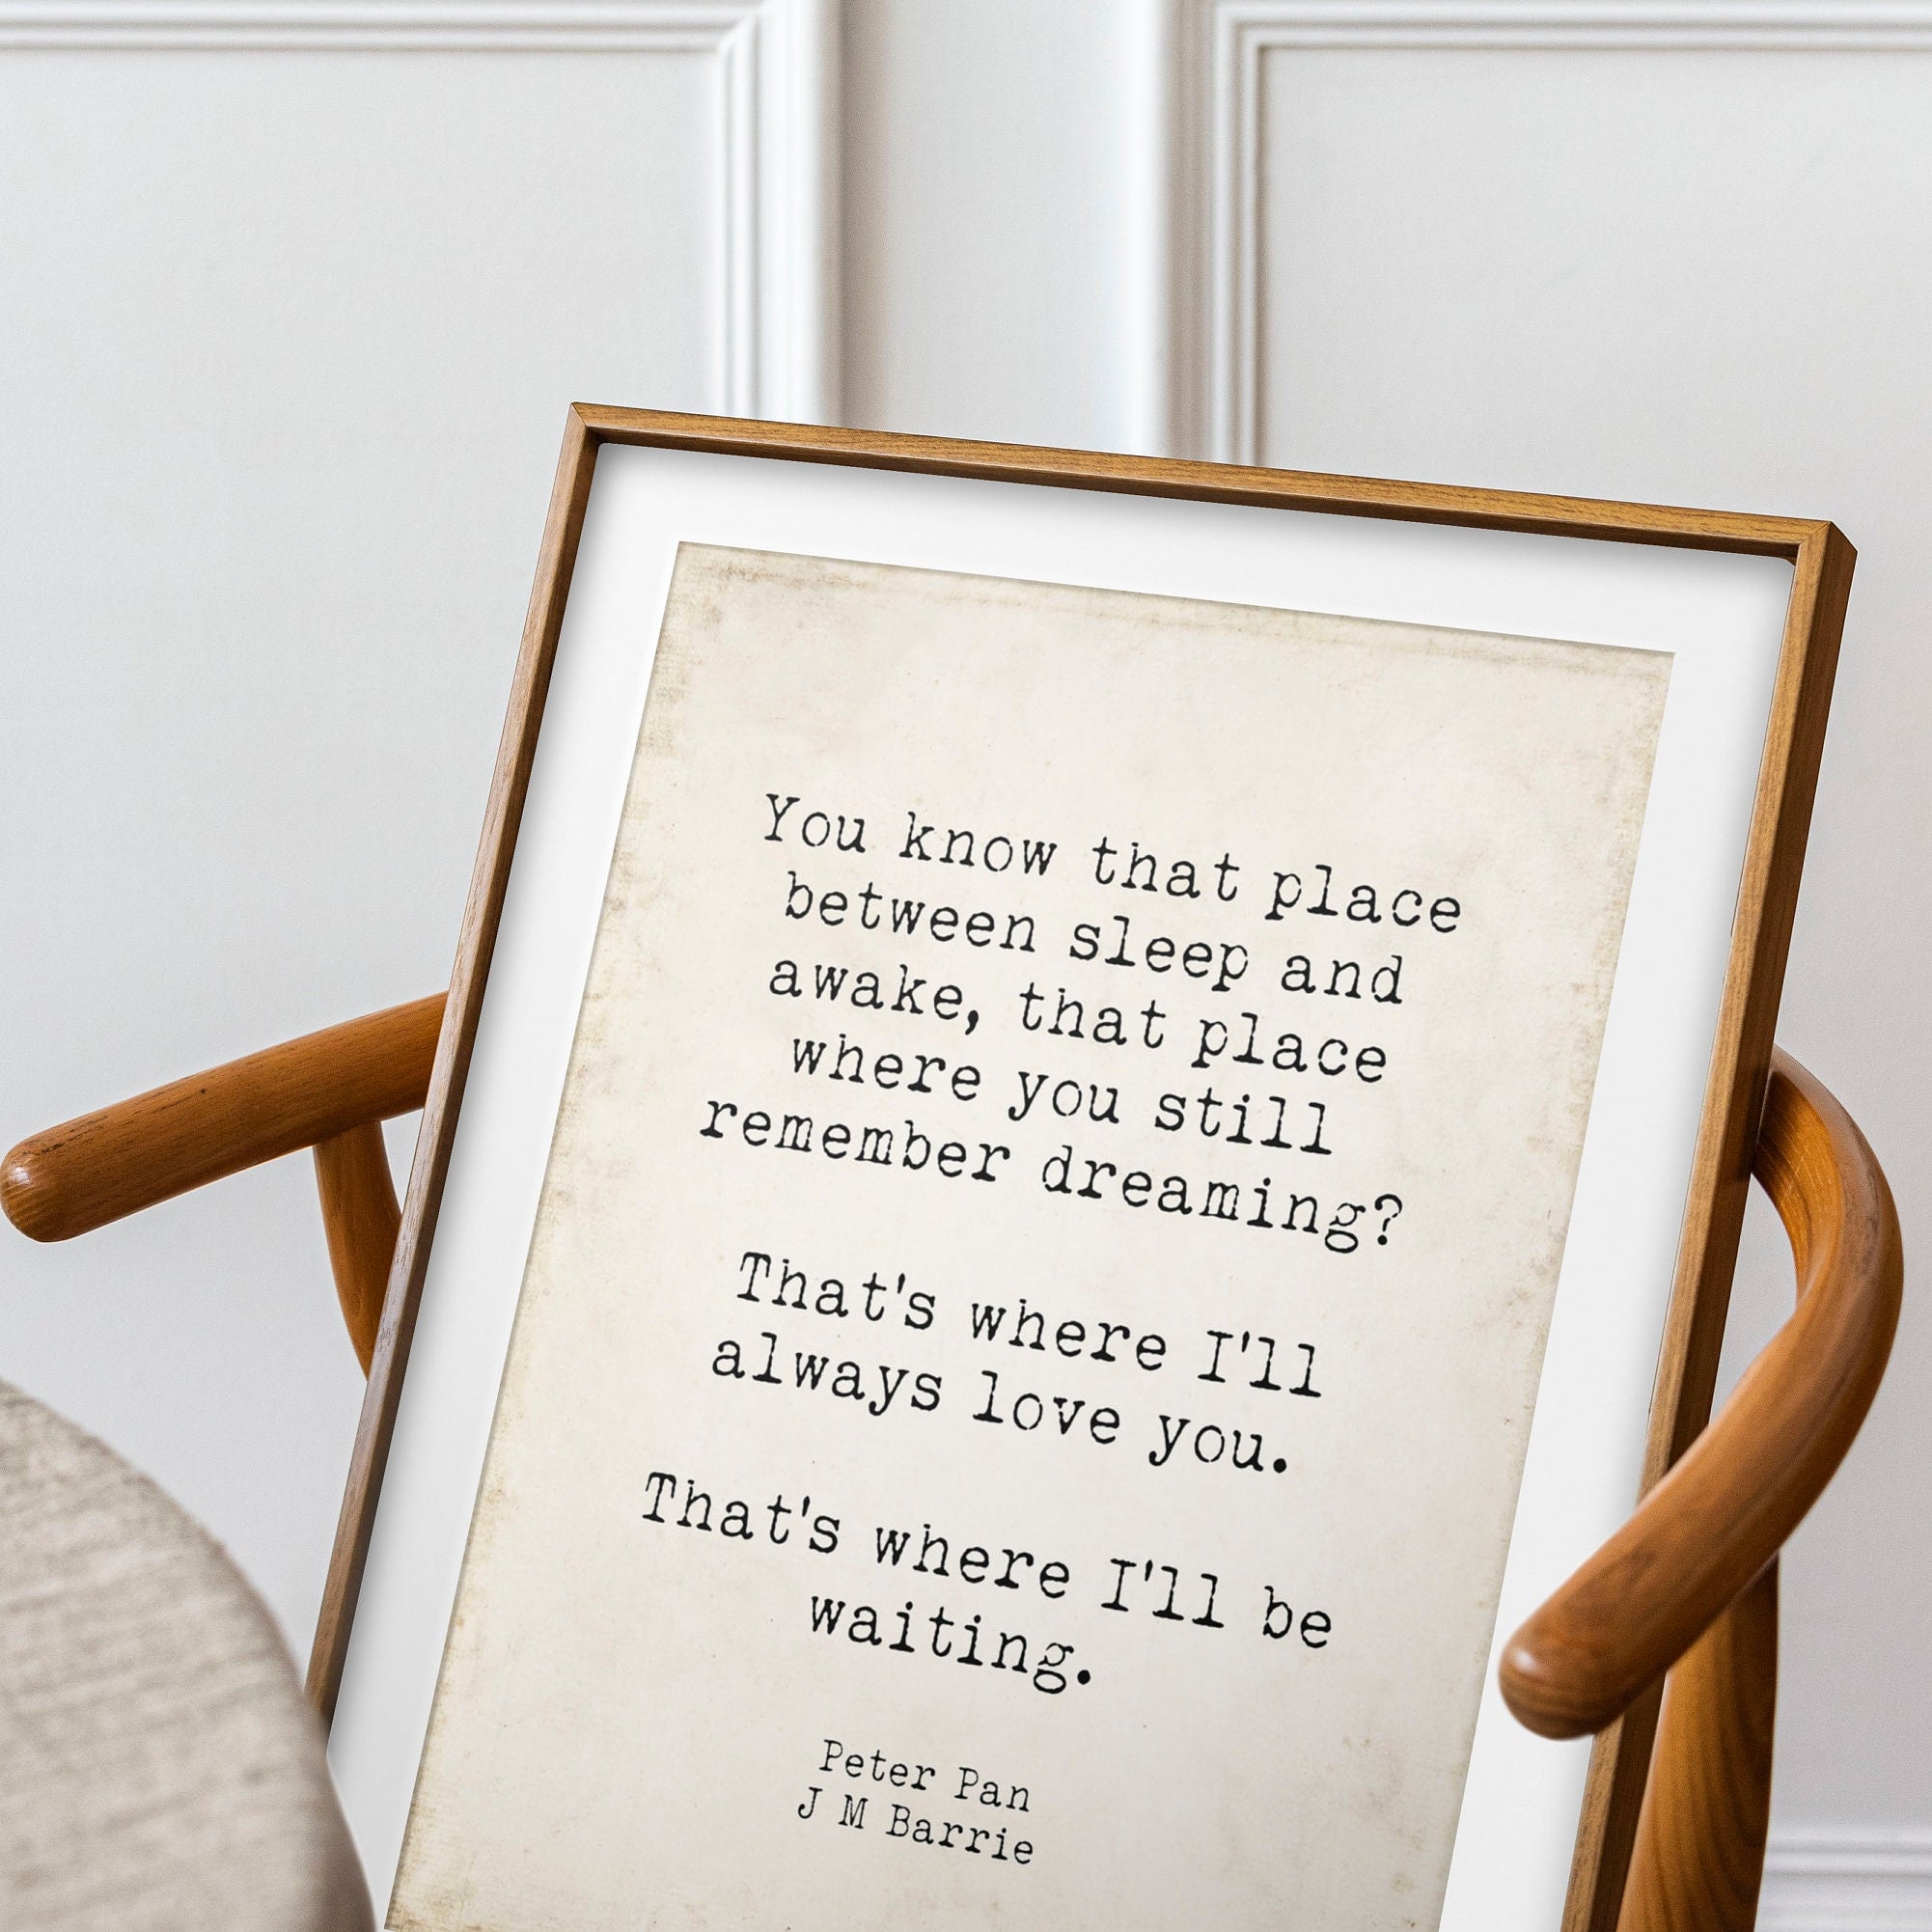 You know that place
between sleep and
awake, that place
where you still
remember dreaming?
That's where I'll
always love you.
That's where I'll be
waiting.
Peter Pan
J M Barrie